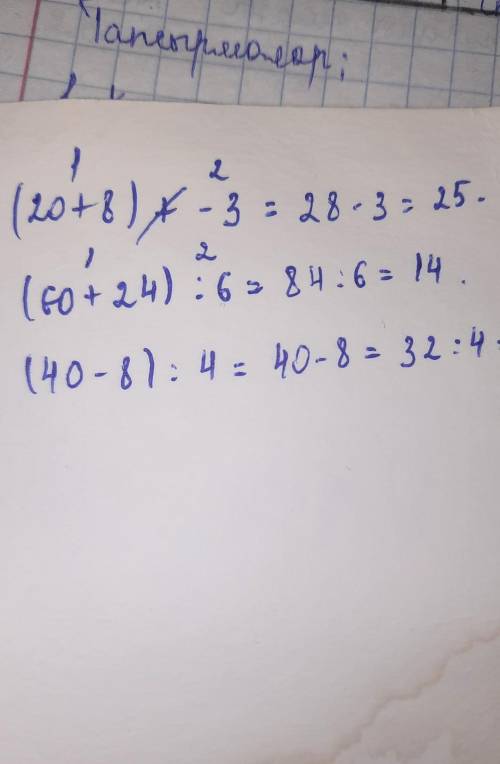 Тапсырмалар:
1 2
(20+8) - 3 = 28 - 3 = 25.
1 2
(60 + 24) : 6 = 84 : 6 = 14.
(40 - 8) : 4 = 40 - 8 = 32 : 4